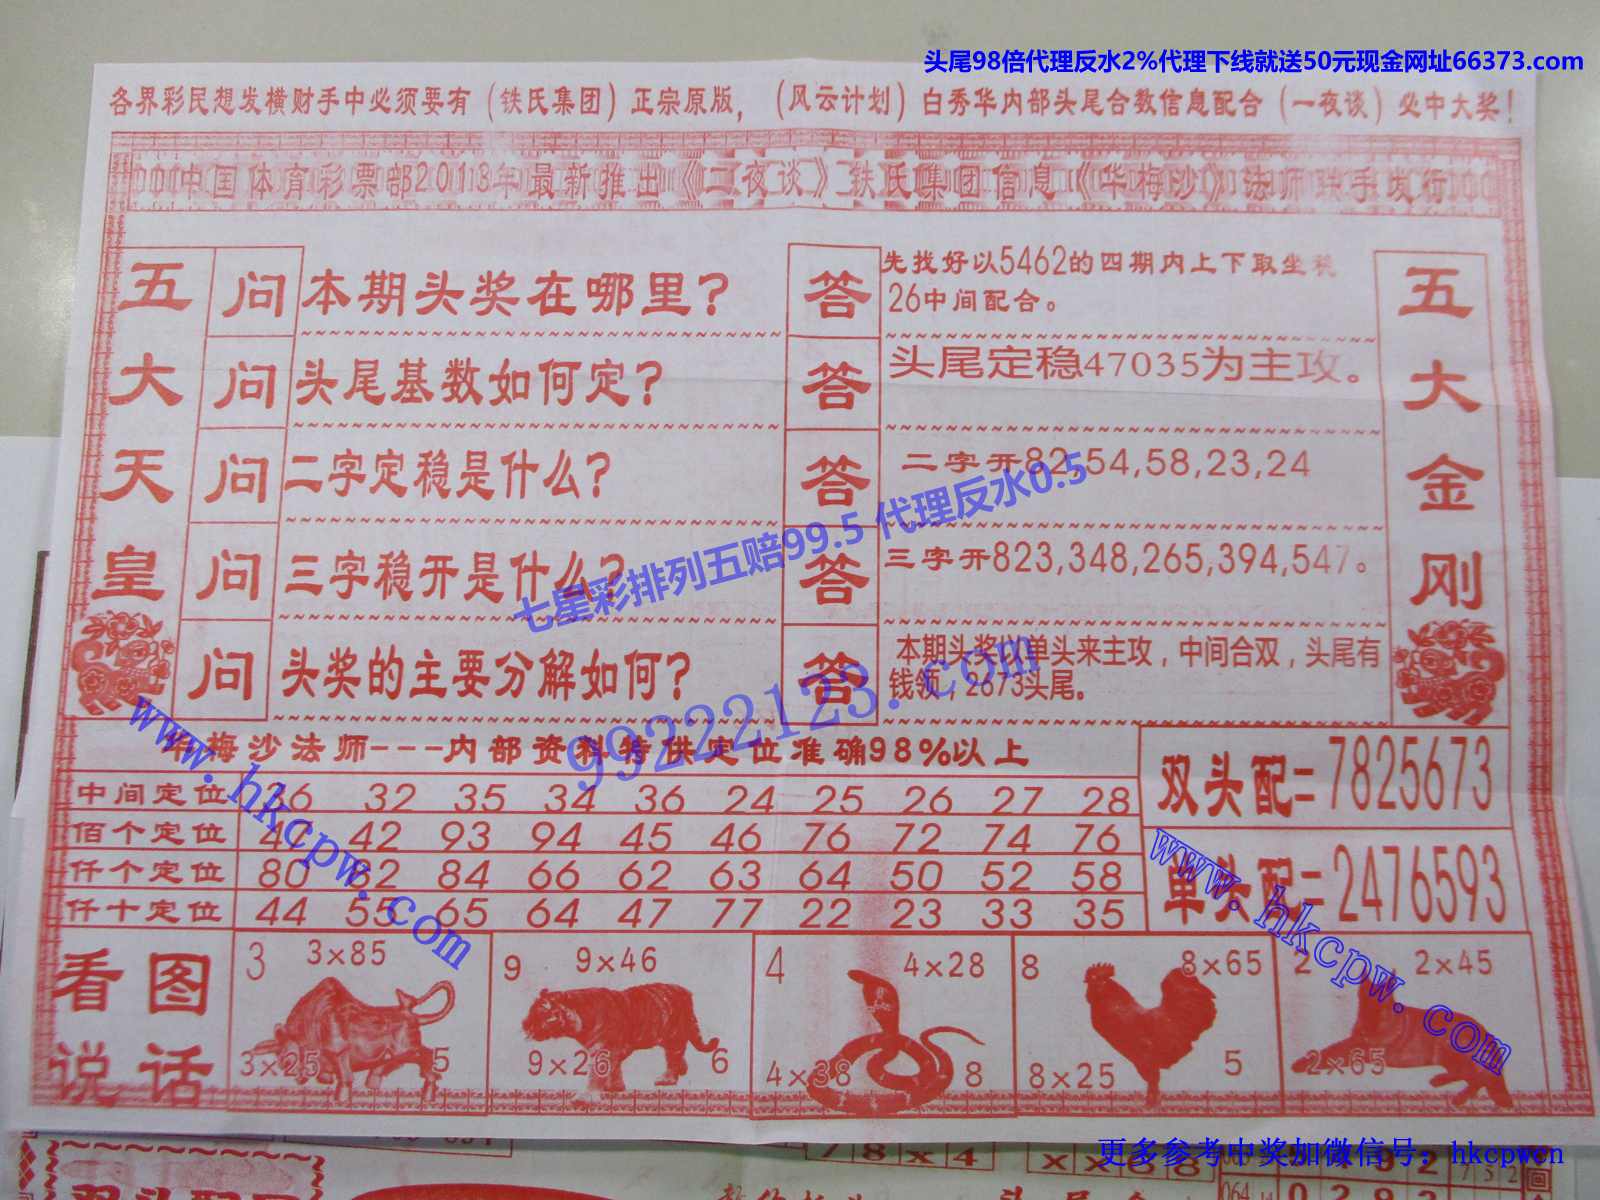 头尾98倍代理反水2%代理下线就送50元现金网址66373.com
各界彩民想发横财手中必须要有(铁氏集团)正宗原版,(风云计划)白秀华内部头尾合数信息配合(一夜谈)必中大奖!
中国体育彩票部2013年最新推出《二夜谈》铁氏集团信息《华梅沙》法师联手发行
五大天皇
问 本期头奖在哪里?
答 先找好以5462的四期内上下取坐稳
26中间配合。
问 头尾基数如何定?
答 头尾定稳47035为主攻。
问 二字定稳是什么?
答 二字开82,54,58,23,24
问 三字稳开是什么?
答 三字开823,348,265,394,547。
问 头奖的主要分解如何?
答 本期头奖以单头来主攻,中间合双,头尾有
钱领,2673头尾。
五大金刚
七星彩排列五赔99.5 代理反水0.5
99222123.com
www.hkcpw.com
华梅沙法师---内部资料特供定位准确98%以上
中间定位 36 32 35 34 36 24 25 26 27 28
佰个定位 47 42 93 94 45 46 76 72 74 76
仟个定位 80 82 84 66 62 63 64 50 52 58
仟十定位 44 55 65 64 47 77 22 23 33 35
双头配=7825673
单头配=2476593
www.hkcpw.com
看图
说话
3 3×85
3×25 5
9 9×46
9×26 6
4 4×28
4×38 8
8 8×65
8×25 5
2 2×45
2×65
更多参考中奖加微信号:hkcpwcn
7 8 X 4
X X 6 8